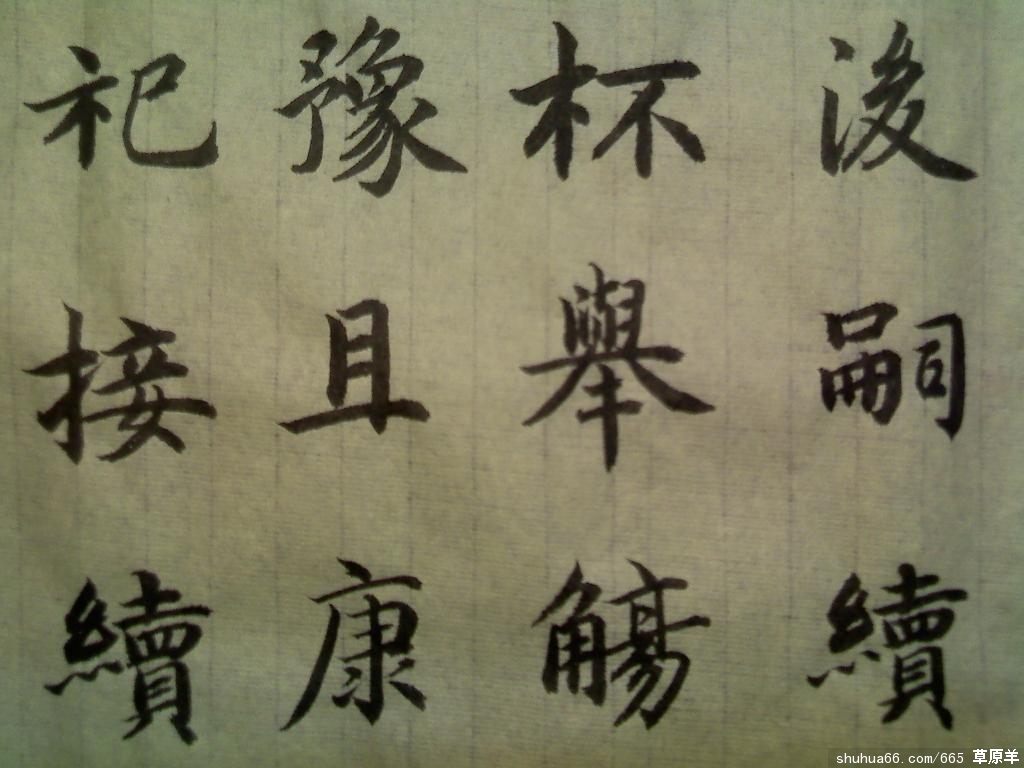 後嗣續
杯舉觴
豫且康
祀接續
shuhua66.com/665 草原羊